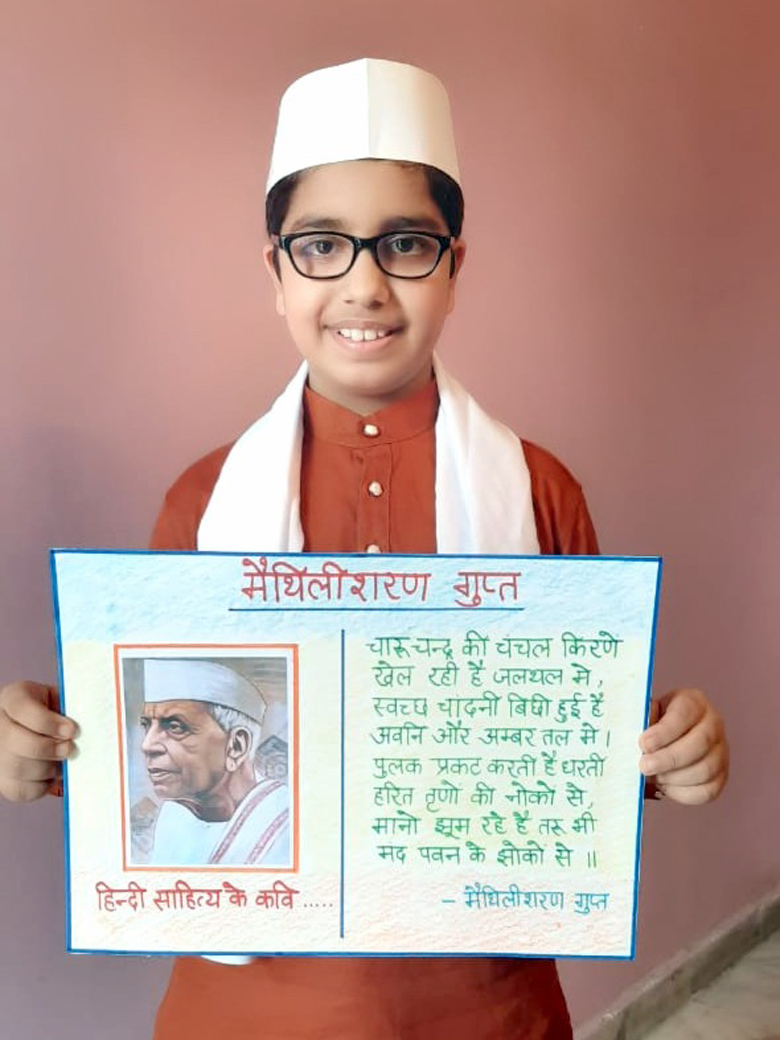 मैथिलीशरण गुप्त
हिन्दी साहित्य के कवि .....
चारू चन्द्र की चंचल किरणे
खेल रही है जलथल मे,
स्वच्छ चांदनी बिछी हुई है
अवनि और अम्बर तल मे।
पुलक प्रकट करती है धरती
हरित तृणो की नोको से,
मानो झूम रहे है तरू भी
मंद पवन के झोको से ॥
- मैथिलीशरण गुप्त